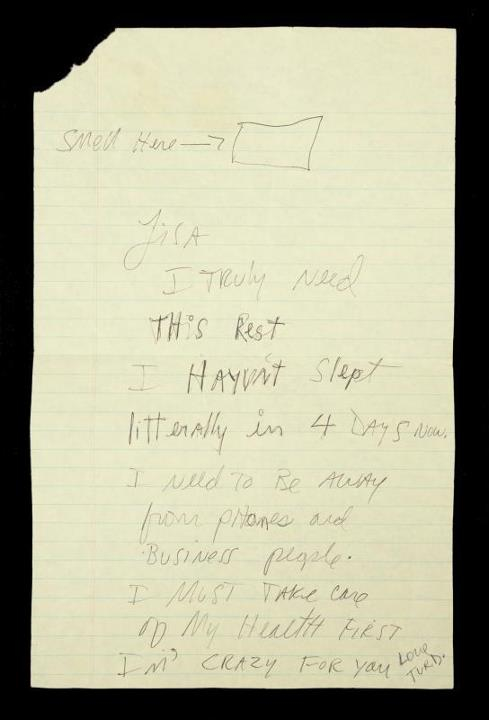 Smell Here →
Lisa
I TRuly Need
THis Rest
I HAVEN't Slept
litterally in 4 DAYS Now.
I Need To Be AWAy
from pHones and
Business people.
I MUST TAKE Care
of My HealtH FiRST
I'M' CRAZY FOR You Love
TURD.